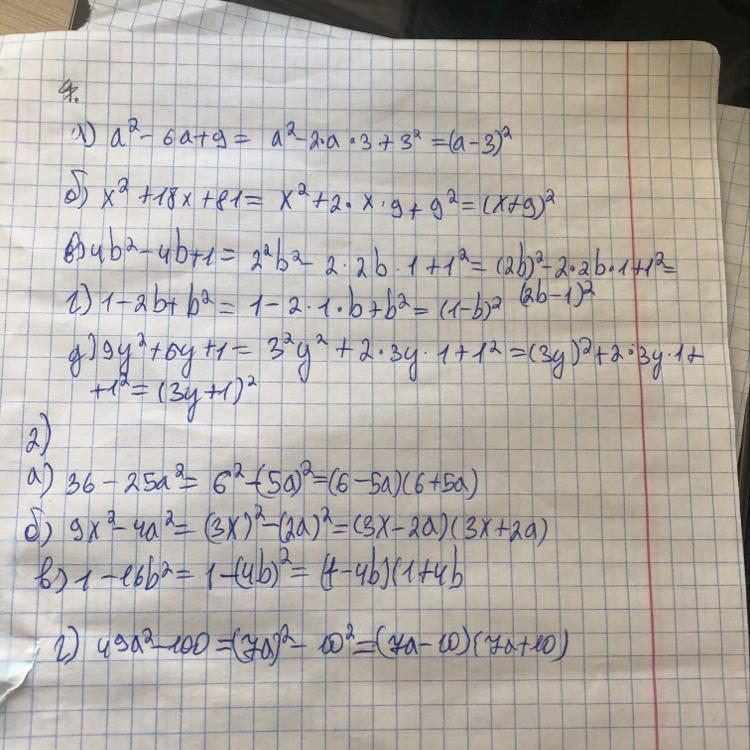 1.
а) a² - 6a + 9 = a² - 2·a·3 + 3² = (a - 3)²
б) x² + 18x + 81 = x² + 2·x·9 + 9² = (x + 9)²
в) 4b² - 4b + 1 = 2²b² - 2·2b·1 + 1² = (2b)² - 2·2b·1 + 1² =
(2b - 1)²
г) 1 - 2b + b² = 1 - 2·1·b + b² = (1 - b)²
д) 9y² + 6y + 1 = 3²y² + 2·3y·1 + 1² = (3y)² + 2·3y·1 +
+ 1² = (3y + 1)²
2)
а) 36 - 25a² = 6² - (5a)² = (6 - 5a)(6 + 5a)
б) 9x² - 4a² = (3x)² - (2a)² = (3x - 2a)(3x + 2a)
в) 1 - 16b² = 1 - (4b)² = (1 - 4b)(1 + 4b
г) 49a² - 100 = (7a)² - 10² = (7a - 10)(7a + 10)